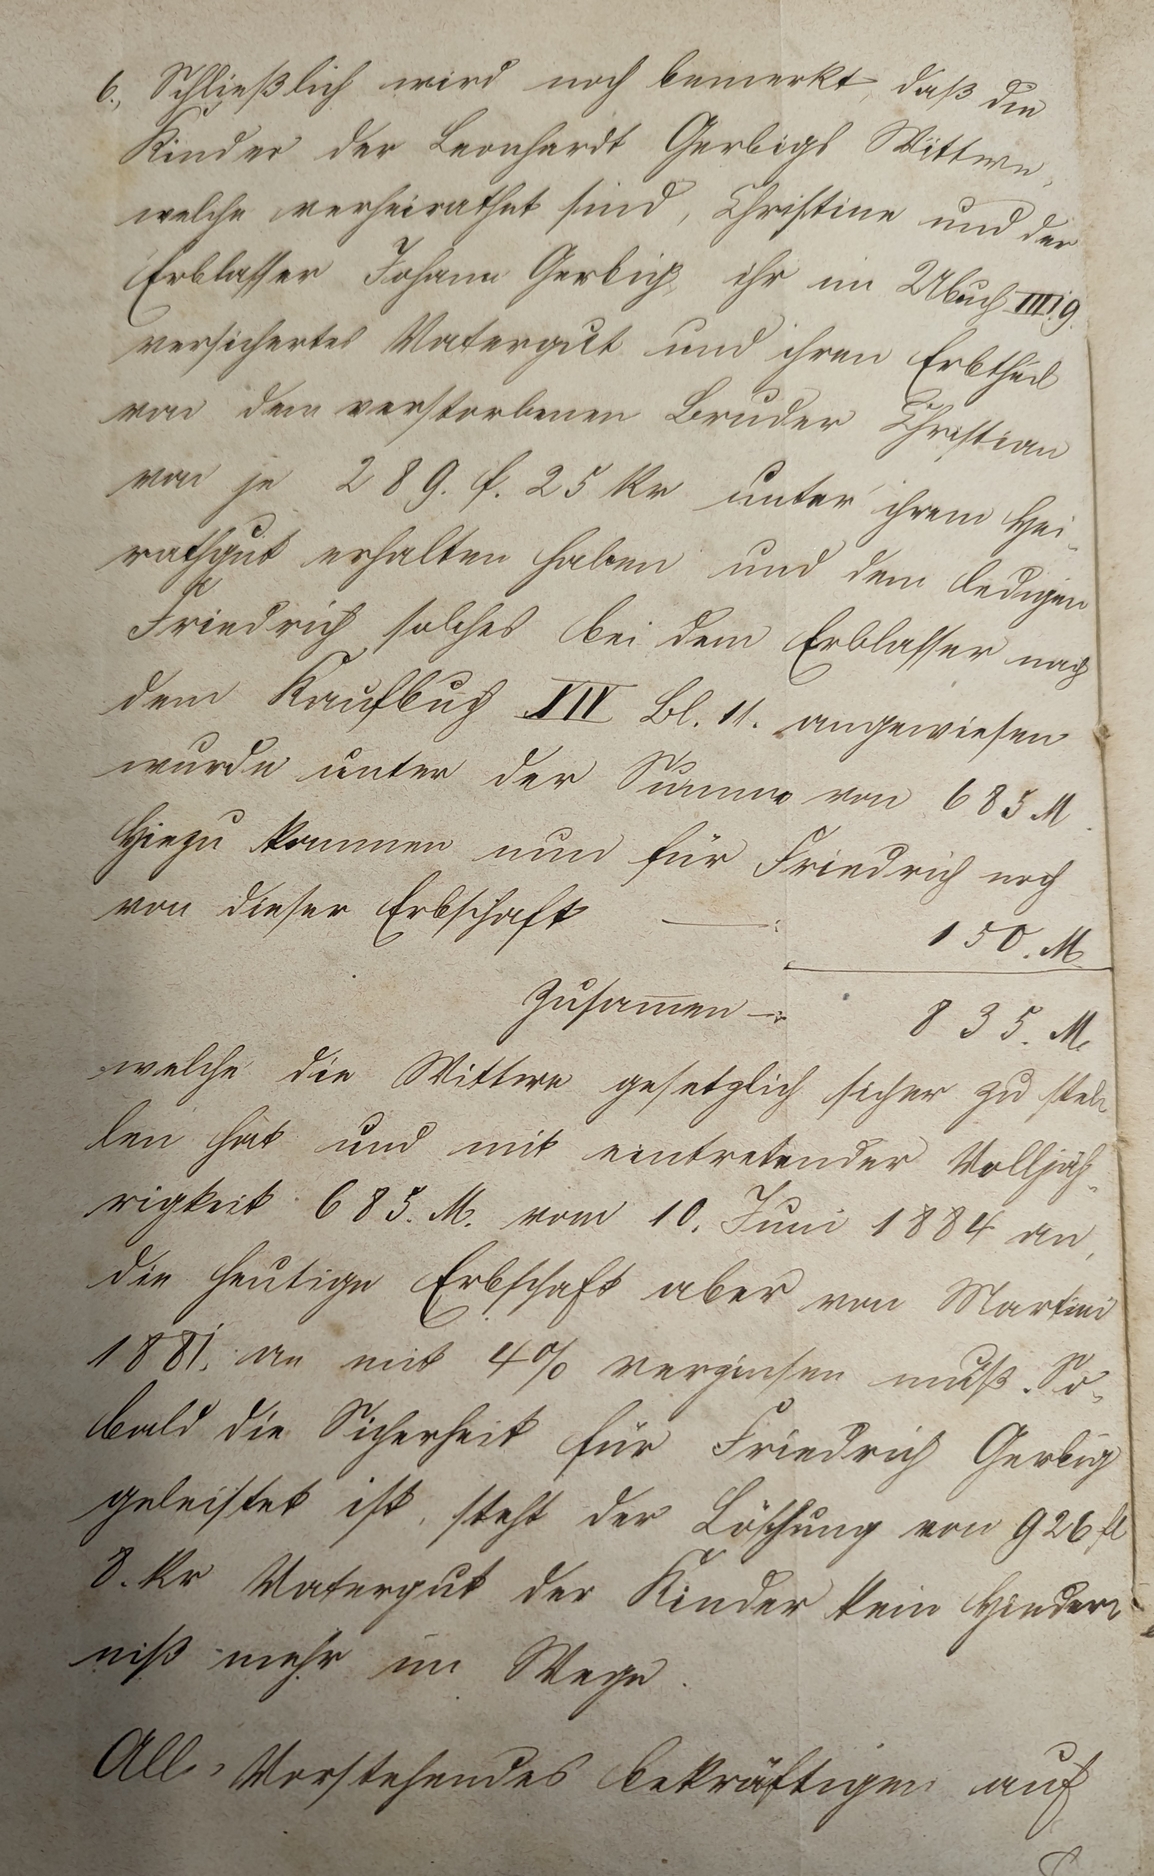 6., Schließlich wird noch bemerkt, daß die
Kinder der Leonhardt Gerbigs Wittwe,
welche verheirathet sind, Christine und der
Erblasser Johann Gerbig, ihr im Ubuch III, 9.
versichertes Vatergut und ihren Erbtheil
von dem verstorbenen Bruder Christian
von je 289. f. 25 Kr unter ihrem Hei-
rathgut erhalten haben und dem ledigen
Friedrich solches bei dem Erblasser nach
dem Kaufbuch XIV Bl. 11. angewiesen
wurde unter der Summe von 685 M.
Hiezu kommen nun für Friedrich noch
von dieser Erbschaft —: 150. M.
Zusam̅en —: 835. M.
welche die Wittwe gesetzlich sicher zu stel-
len hat und mit eintretender Volljäh-
rigkeit 685. M. vom 10. Juni 1884 an,
die heutige Erbschaft aber von Martini
1881. an mit 4% verzinsen muß. So-
bald die Sicherheit für Friedrich Gerbig
geleistet ist, steht der Löschung von 926 fl
8. Kr Vatergut der Kinder kein Hinder-
niß mehr im Wege.
All. Vorstehendes bekräftigen auf